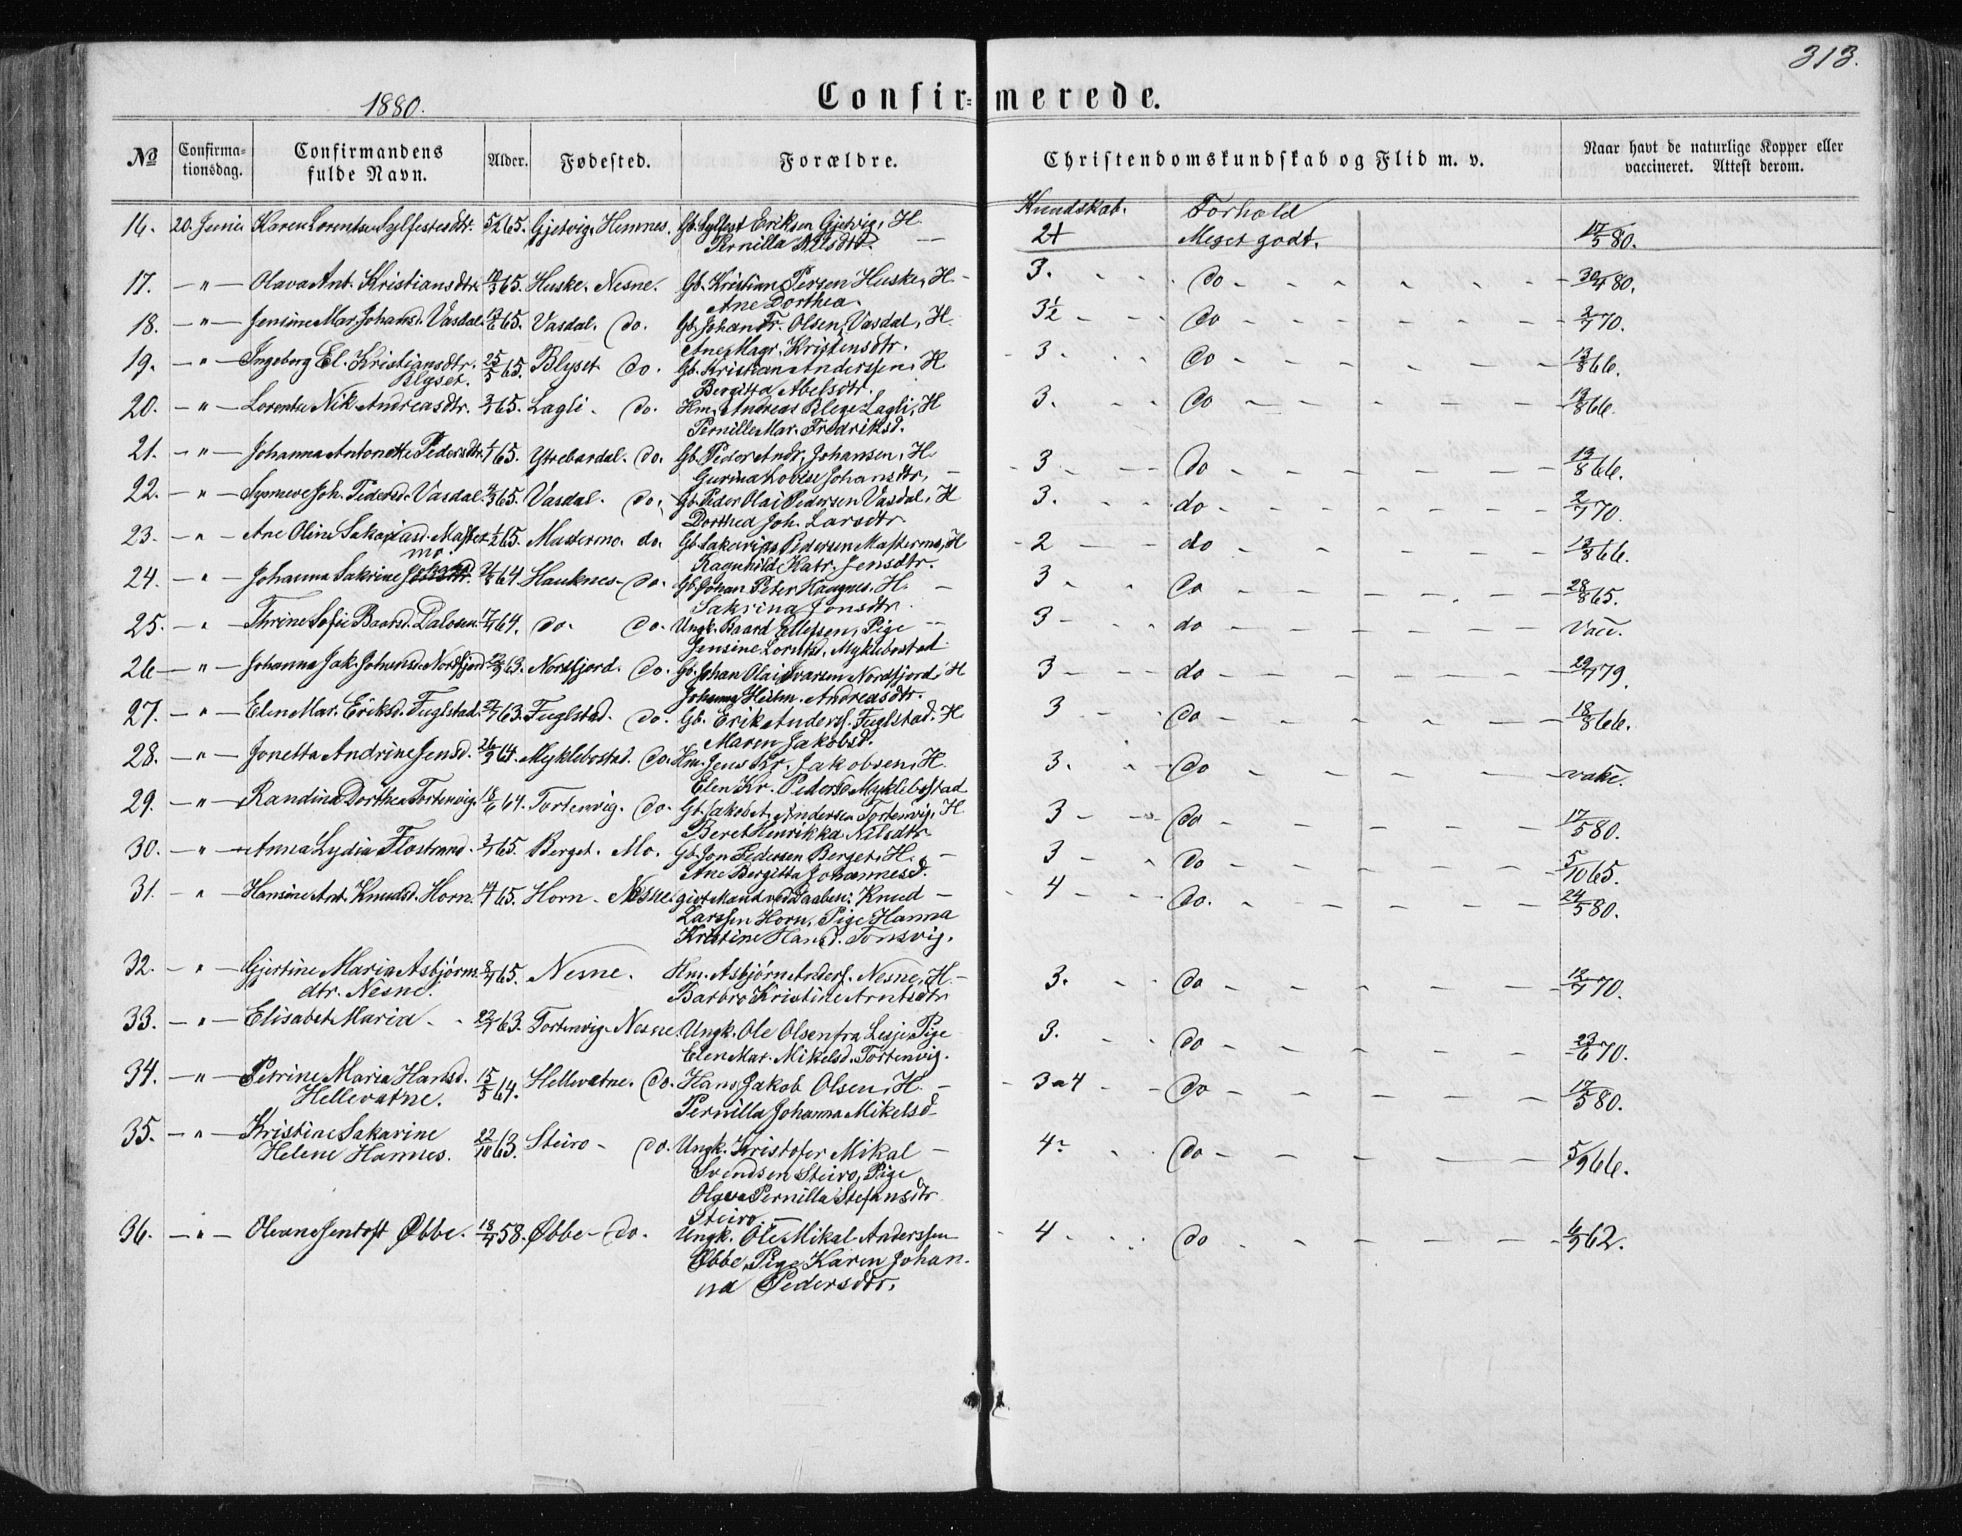 313.
1880.
Confir=merede.
№
Confirma-
tionsdag.
Confirmandens
fulde Navn.
Alder.
Fødested.
Forældre.
Christendomskundskab og Flid m. v.
Naar havt de naturlige Kopper eller
vaccineret. Attest derom.
Kundskab. Forhold
16. 20. Juni Karen Lorentse Sylfestesdtr. 65. Gjetvig, Hemnes. Gb. Sylfest Eriksen Gjetvig, H. 2+ Meget godt. 17/5 80.
Pernilla Nilsdtr. —
17. — " — Olava Ant. Kristiansdtr. 65. Huske. Nesne. Gb. Kristian Persen Huske, H. 3. do 30/4 80.
Ane Dorthea.
18. — " — Jensine Mar. Johansd. Vasdal. 65. Vasdal. do. Gb. Johan Fr. Olsen, Vasdal, H. 3½ do 2/7 70.
Ane Magr. Kristensdtr.
19. — " — Ingeborg El. Kristiansdtr. 25/5 65. Blyset do. Gb. Kristian Anderssen, H 3. do 13/8 66.
Blyset. Bergitta Abelsdtr.
20. — " — Lorentse Nik. Andreasdtr. 65. Lagli. do. Hm. Andreas Lagli, H 3. do 13/8 66.
Pernille Mar. Fredriksd.
21. — " — Johanna Antonette Pedersdtr. 65. Ytrebardal. do. Gb. Peder Andr. Johansen, H. 3 do 13/8 66.
Gurina Lovise Johansdtr. —
22. — " — Synneve Joh. Pedersd. Vasdal 65. Vasdal. do. Gb. Peder Olai Pedersen Vasdal, H 3. do 2/7 70.
Dorthea Joh. Larsdtr.
23. — " — Ane Oline Sakariasd. Master- 65. Mastermo. do. Gb. Sakarias Pedersen Mastermo, H 2 do 13/8 66.
mo. Ragnhild Katr. Jensdtr.
24. — " — Johanna Sakrine 64 Hauknes do. Gb. Johan Peter Haugnes. H. 3 do 28/8 65.
Sakrina Jonsdtr.
25. — " — Thrine Sofie Baards. Dalosen. 64. do. do. Ungk. Baard Ellefsen, Pige 3 do Vacc.
Jensine Lorntsd. Myklebostad
26 — " — Johanna Jak. Johansd. Nordfjord 63. Nordfjord. do. Gb. Johan Olai Ivarsen Nordfjord, H 3 do 29/4 79.
Johanna Andreasdtr.
27. — " — Elen Mar. Eriksd. Fuglstad. 63. Fuglstad. do. Gb. Erik Anders. Fuglstad. H. 3 do 18/8 66.
Maren Jakobsd.
28. — " — Jonetta Andrine Jensd. 64. Myklebostad. do. Hm. Jens Kr. Jakobsen, H. 3. do vakc.
Elen Kr. Pedersd. Myklebostad
29. — " — Randina Dorthea Tortenvig. 18/6 64. Tortenvig. do. Gb. Jakob A. Andersen Tortenvig, H 3 do 17/5 80.
Beret Henrikka Nilsdtr
30. — " — Anna Lydia Flostrand. 65. Berget. Mo. Gb. Jon Pedersen Berget, H. 3 do 5/10 65.
Ane Bergitta Johannesd.
31. " — Hansine Ant. Knudsd. Horn. 65. Horn. Nesne. gift Mand ved Daaben: Knud — 4 do. 24/5 80.
Larssen Horn, Pige Hanna
Kristine Hansd. Tonsvig.
32. — " — Gjertine Maria Asbjørns 65. Nesne. Hm. Asbjørn Anders. Nesne, H. 3. do 12/7 70.
dtr. Nesne. Barbro Kristine Arntsdtr
33. — " — Elisabet Maria 63. Tortenvig. Nesne Ungk. Ole Olsen fra Lesje Pige 3. do 23/6 70.
Elen Mar. Mikelsd. Tortenvig.
34. — " — Petrine Maria Hansd. 15/5 64. Hellevatne. do. Hans Jakob Olsen, H. — 3 a 4 do 17/5 80.
Hellevatne. Pernilla Johanna Mikelsd
35. — " — Kristine Sakarine 22/10 63. Steiro do. Ungk. Kristofer Mikal — 4 do 5/9 66.
Helene Hannes. Svendsen Steiro, Pige
Olava Pernilla Stefansdtr
Steiro. —
36. — " — Olevine Jentoft Øbbe. 18/7 58. Øbbe do. Ungk. Ole Mikal Anderssen 4 do 6/9 62.
Øbbe, Pige Karen Johan-
na Pedersdtr.